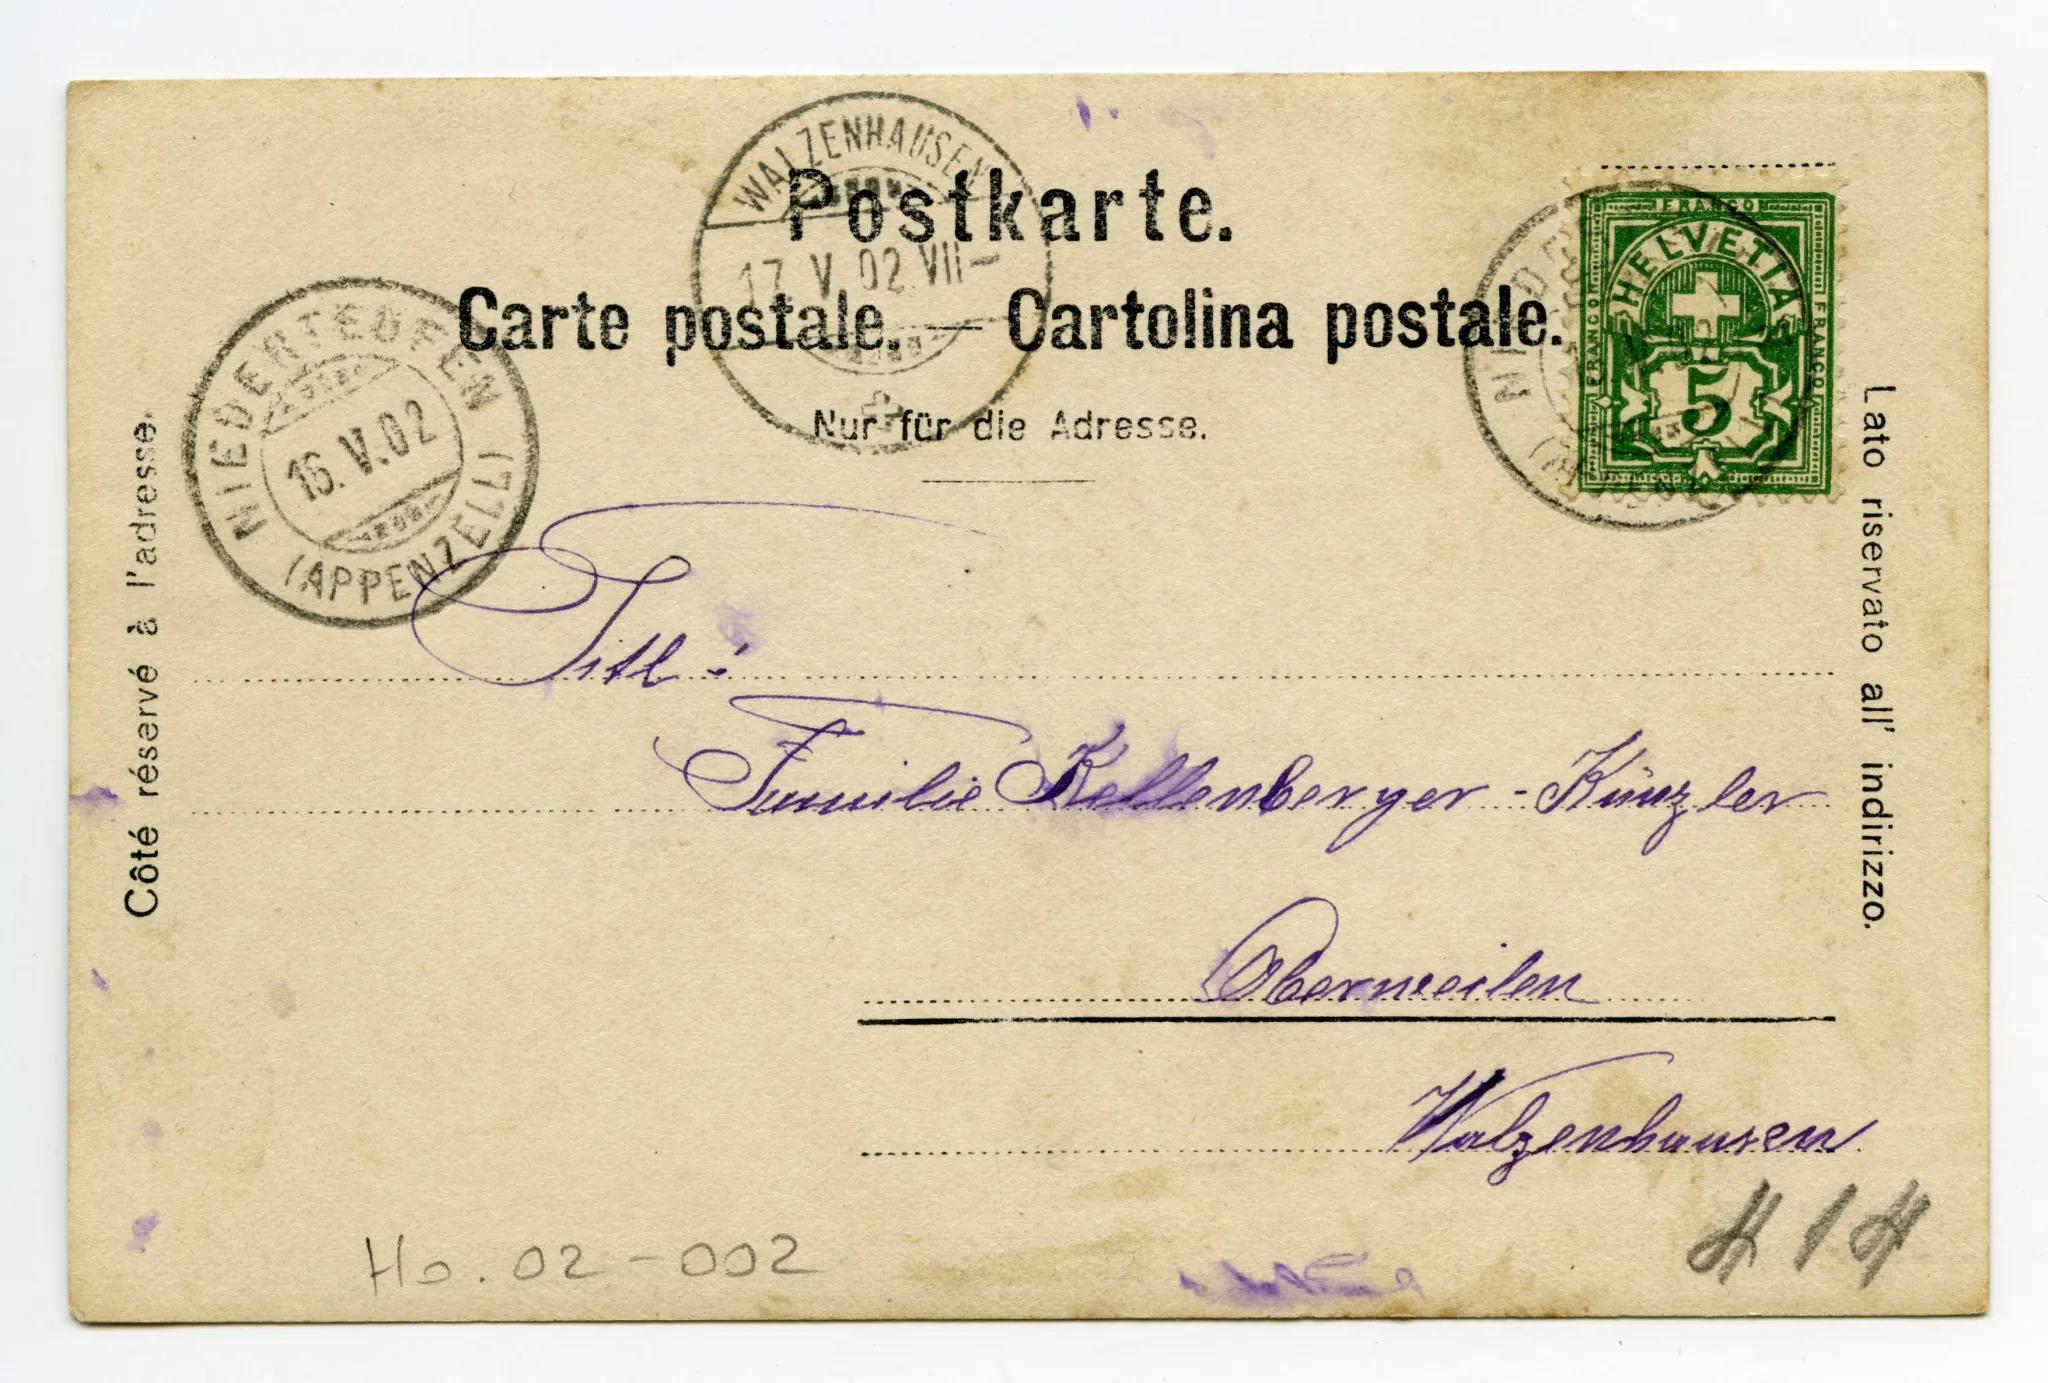 WALZENHAUSEN
17. V. 02. VII–
Postkarte.
Carte postale. — Cartolina postale.
Nur für die Adresse.
NIEDERTEUFEN
16. V. 02
(APPENZELL)
FRANCO
HELVETIA
FRANCO
FRANCO
5
Côté réservé à l'adresse.
Lato riservato all' indirizzo.
Titl:
Familie Kellenberger-Künzler
Oberweilen
Walzenhausen
Ho. 02-002